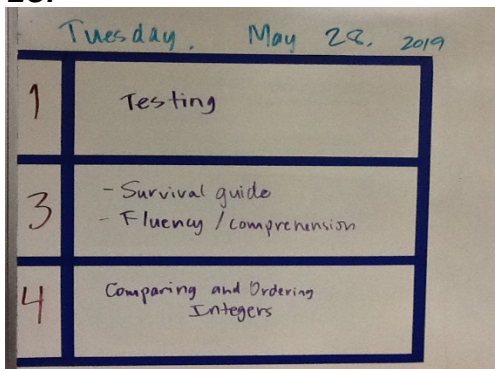 Tuesday. May 28. 2019
1 Testing
3 - Survival guide
- Fluency / comprehension
4 Comparing and Ordering
Integers